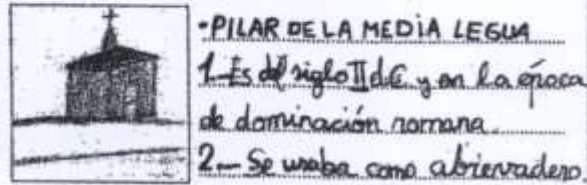 ·PILAR DE LA MEDIA LEGUA
1.- Es del siglo II d.C y en la época
de dominación romana.
2.- Se usaba como abrevadero